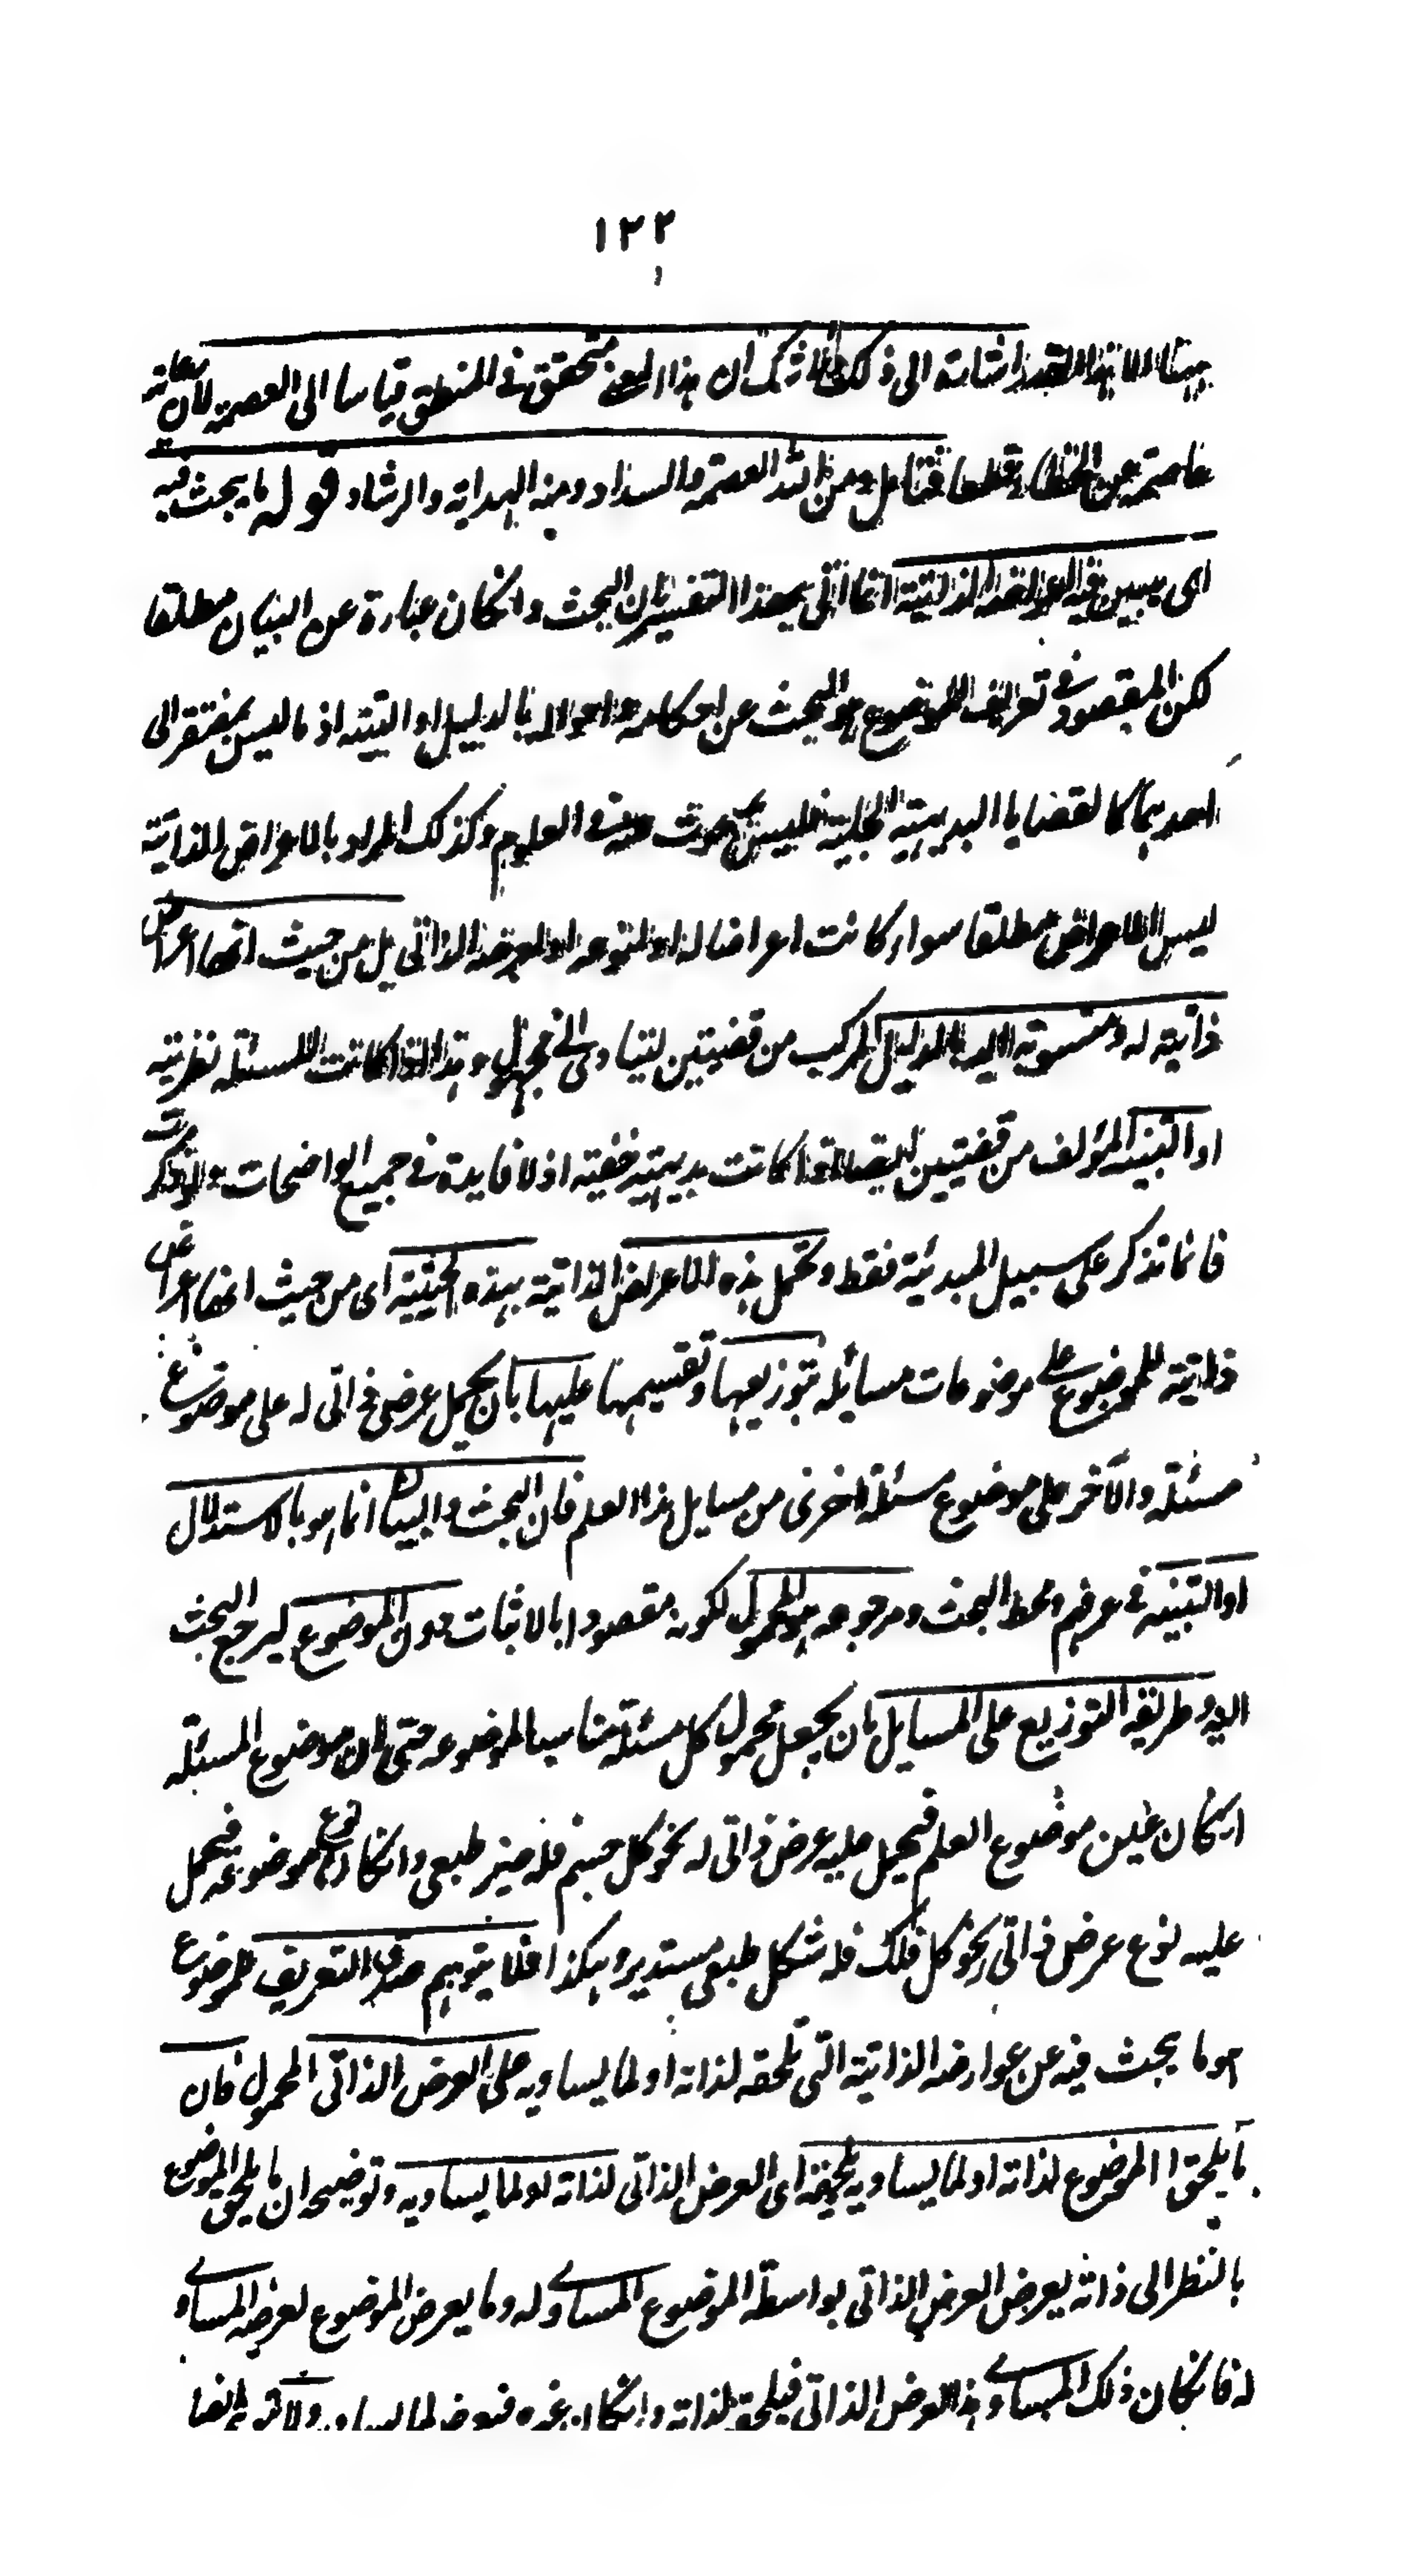 ١٢٢
ههنا الا بهذا القدر اشارة الى ذلك فلا شك ان هذا المعنى متحقق في المنطق قياسا الى العصمة لان معانيه
عاصمة عن الخطاء قطعا فتامل ومن الله العصمة والسداد ومنه الهداية والرشاد قوله ما يبحث فيه
اى يبين فيه اعراضه الذاتية انما اتى بهذا التفسير لان البحث وانكان عبارة عن البيان مطلقا
لكن المقصود في تعريف الموضوع هو البحث عن احكامه واحواله بالدليل او التنبيه اذ ما ليس بمفتقر الى
احدهما كالقضايا البديهية الجلية فليس يبحوث عنه في العلوم وكذلك المراد بالاعراض الذاتية
ليس الاعراض مطلقا سواء كانت اعراضا له او لنوعه او لعرضه الذاتي بل من حيث انها اعراض
ذاتية له ومنسوبة اليه بالدليل المركب من قضيتين ليتادى الى مجهول وهذا اذا كانت المسئلة نظرية
او التنبيه المؤلف من قضيتين اذا كانت بديهية خفية اذ لا فايدة في جميع الواضحات ولو ذكرت
فانما تذكر على سبيل المبدئية فقط وتحمل هذه الاعراض الذاتية بهذه الحيثية اى من حيث انها اعراض
ذاتية للموضوع على موضوعات مسائله بتوزيعها وتقسيمها عليها بان يحمل عرض ذاتى له على موضوع
مسئلة والآخر على موضوع مسئلة اخرى من مسايل هذا العلم فان البحث والبيان انما هو بالاستدلال
او التنبيه في عرفهم ومحط البحث ومرجوعه هو المحمول لكونه مقصودا بالاثبات دون الموضوع ليرجع البحث
اليه وطريقه التوزيع على المسايل بان يجعل محمول كل مسئلة مناسبا لموضوعه حتى ان موضوع المسئلة
انكان عين موضوع العلم فيحمل عليه عرض ذاتى له نحو كل جسم فله حيز طبعى وانكان نوع موضوعه فيحمل
عليه نوع عرض ذاتى نحو كل فلك فله شكل طبعى مستدير وهكذا فلا يتوهم صدق التعريف لموضوع
هو ما يبحث فيه عن عوارضه الذاتية التى تلحقه لذاته او لما يساويه على العرض الذاتى المحمول فان
ما يلحق الموضوع لذاته او لما يساويه يلحقه اى العرض الذاتى لذاته او لما يساويه وتوضيحه ان ما يلحق الموضوع
بالنظر الى ذاته يعرض العرض الذاتى بواسطة الموضوع المساوى له وما يعرض الموضوع لعرضه المساو
له فانكان ذلك المساوى هذا العرض الذاتى فيلحقه لذاته وانكان غيره فيعرضه لما يساويه